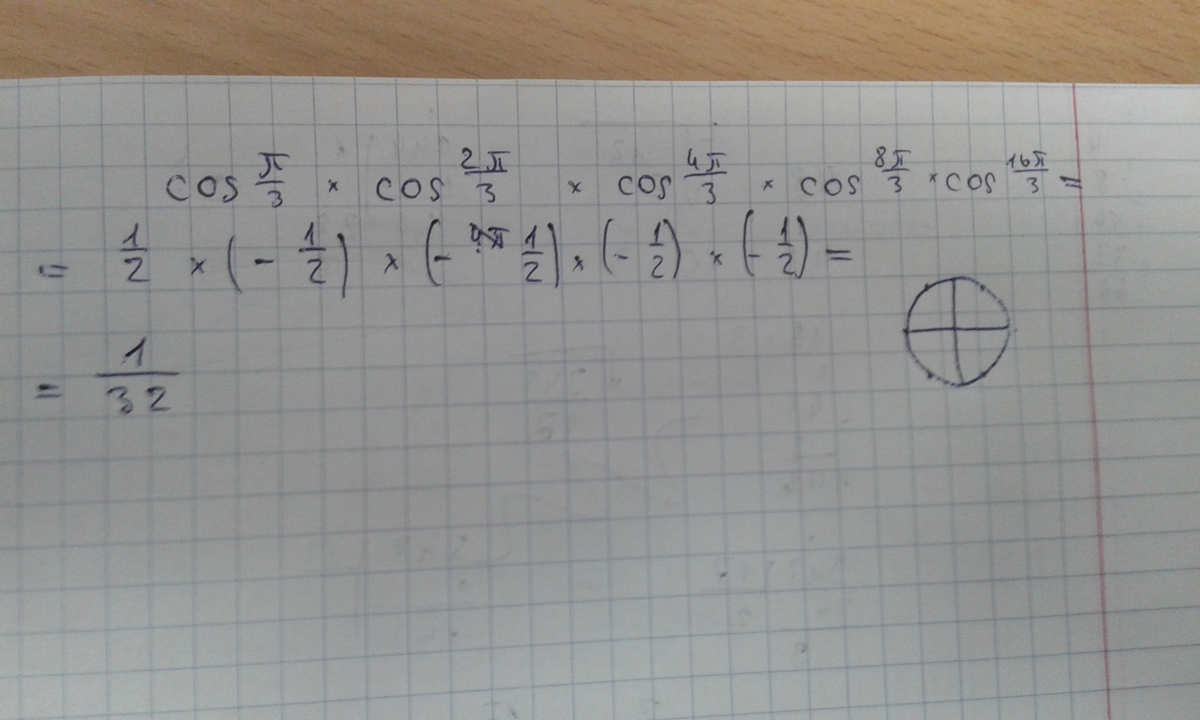 cos π/3 × cos 2π/3 × cos 4π/3 × cos 8π/3 × cos 16π/3 =
= 1/2 × (- 1/2) × (- 1/2) × (- 1/2) × (- 1/2) =
= 1/32